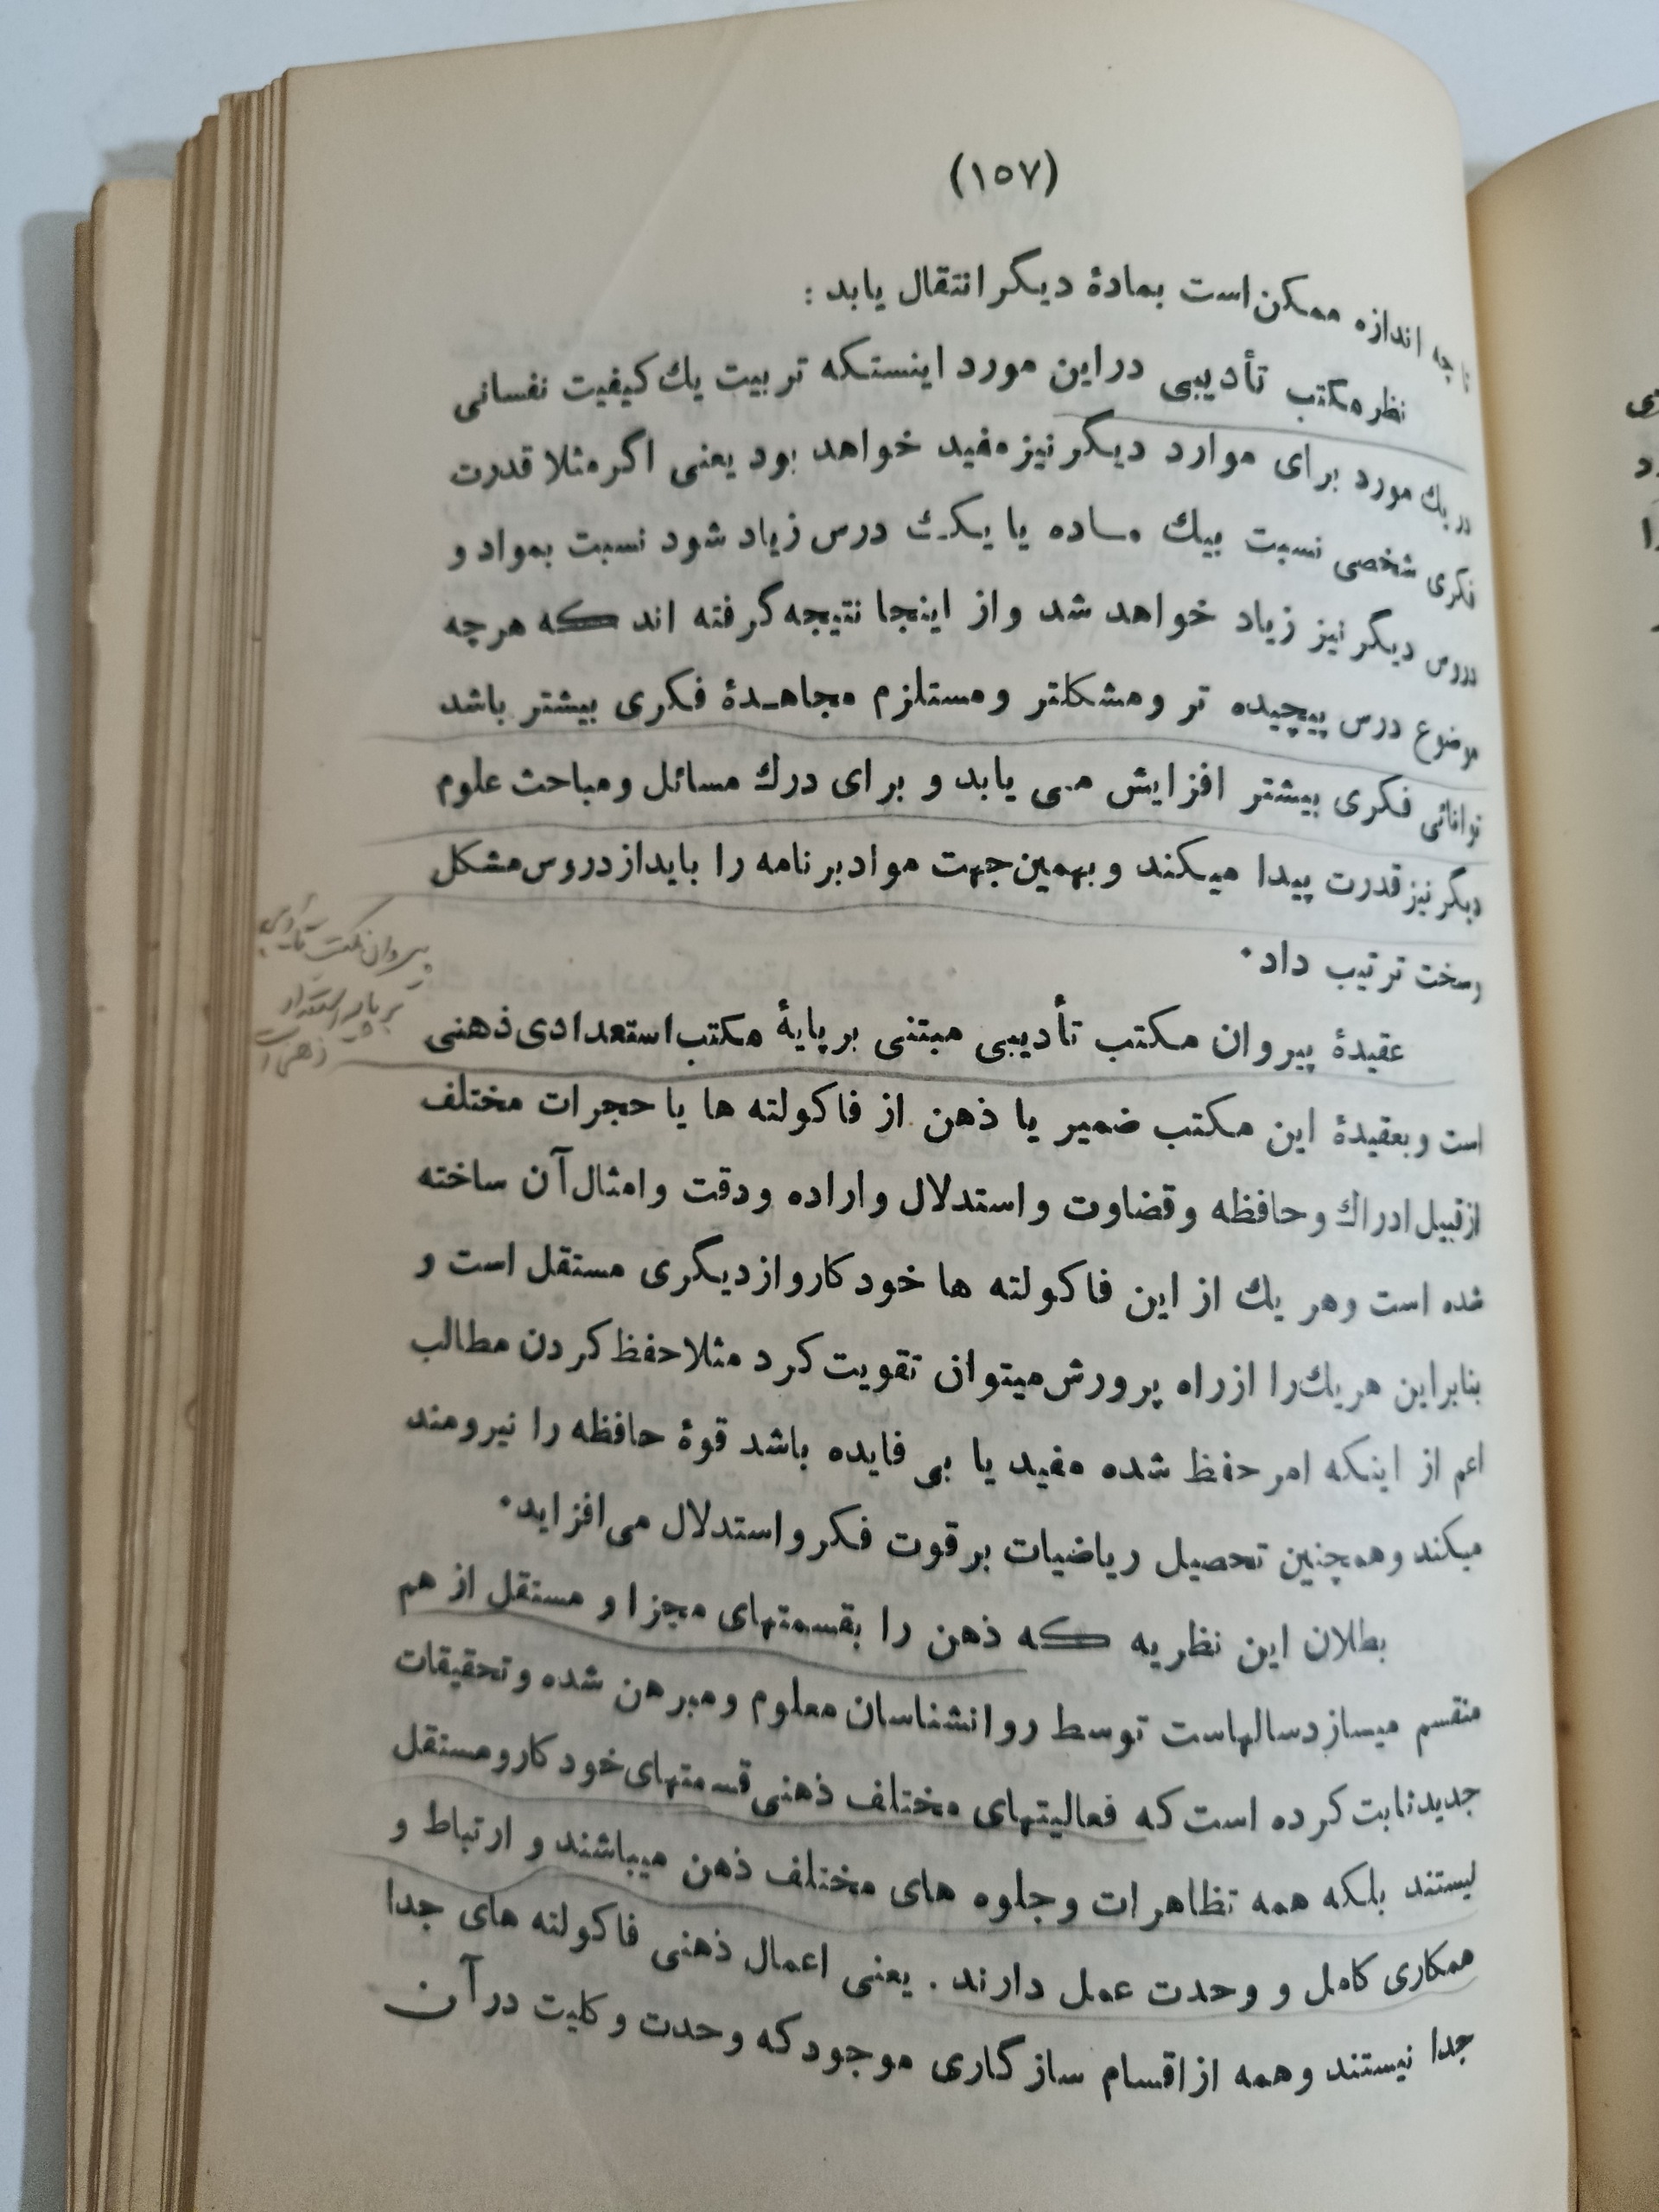 (۱۵۷)
تا چه اندازه ممکن است بمادهٔ دیگر انتقال یابد :
نظر مکتب تأدیبی در این مورد اینستکه تربیت یك کیفیت نفسانی
در یك مورد برای موارد دیگر نیز مفید خواهد بود یعنی اگر مثلا قدرت
فکری شخصی نسبت بیك مــاده یا یکــك درس زیاد شود نسبت بمواد و
دروس دیگر نیز زیاد خواهد شد و از اینجا نتیجه گرفته اند که هر چه
موضوع درس پیچیده تر و مشکلتر و مستلزم مجاهــدهٔ فکری بیشتر باشد
توانائی فکری بیشتر افزایش مــی یابد و برای درك مسائل و مباحث علوم
دیگر نیز قدرت پیدا میکند و بهمین جهت مواد برنامه را باید از دروس مشکل
و سخت ترتیب داد.
عقیدهٔ پیروان مکتب تأدیبی مبتنی بر پایهٔ مکتب استعدادی ذهنی
است و بعقیدهٔ این مکتب ضمیر یا ذهن از فاکولته ها یا حجرات مختلف
از قبیل ادراك و حافظه و قضاوت و استدلال و اراده و دقت و امثال آن ساخته
شده است و هر یك از این فاکولته ها خود کار و از دیگری مستقل است و
بنابراین هر یك را از راه پرورش میتوان تقویت کرد مثلا حفظ کردن مطالب
اعم از اینکه امر حفظ شده مفید یا بی فایده باشد قوهٔ حافظه را نیرومند
میکند و همچنین تحصیل ریاضیات بر قوت فکر و استدلال می افزاید.
بطلان این نظریه که ذهن را بقسمتهای مجزا و مستقل از هم
منقسم میسازد سالهاست توسط روانشناسان معلوم و مبرهن شده و تحقیقات
جدید ثابت کرده است که فعالیتهای مختلف ذهنی قسمتهای خود کار و مستقل
نیستند بلکه همه تظاهرات و جلوه های مختلف ذهن میباشند و ارتباط و
همکاری کامل و وحدت عمل دارند . یعنی اعمال ذهنی فاکولته های جدا
جدا نیستند و همه از اقسام سازگاری موجود که وحدت و کلیت در آن
پیروان مکتب تأدیبی
بر پایه استعداد
ذهنی است